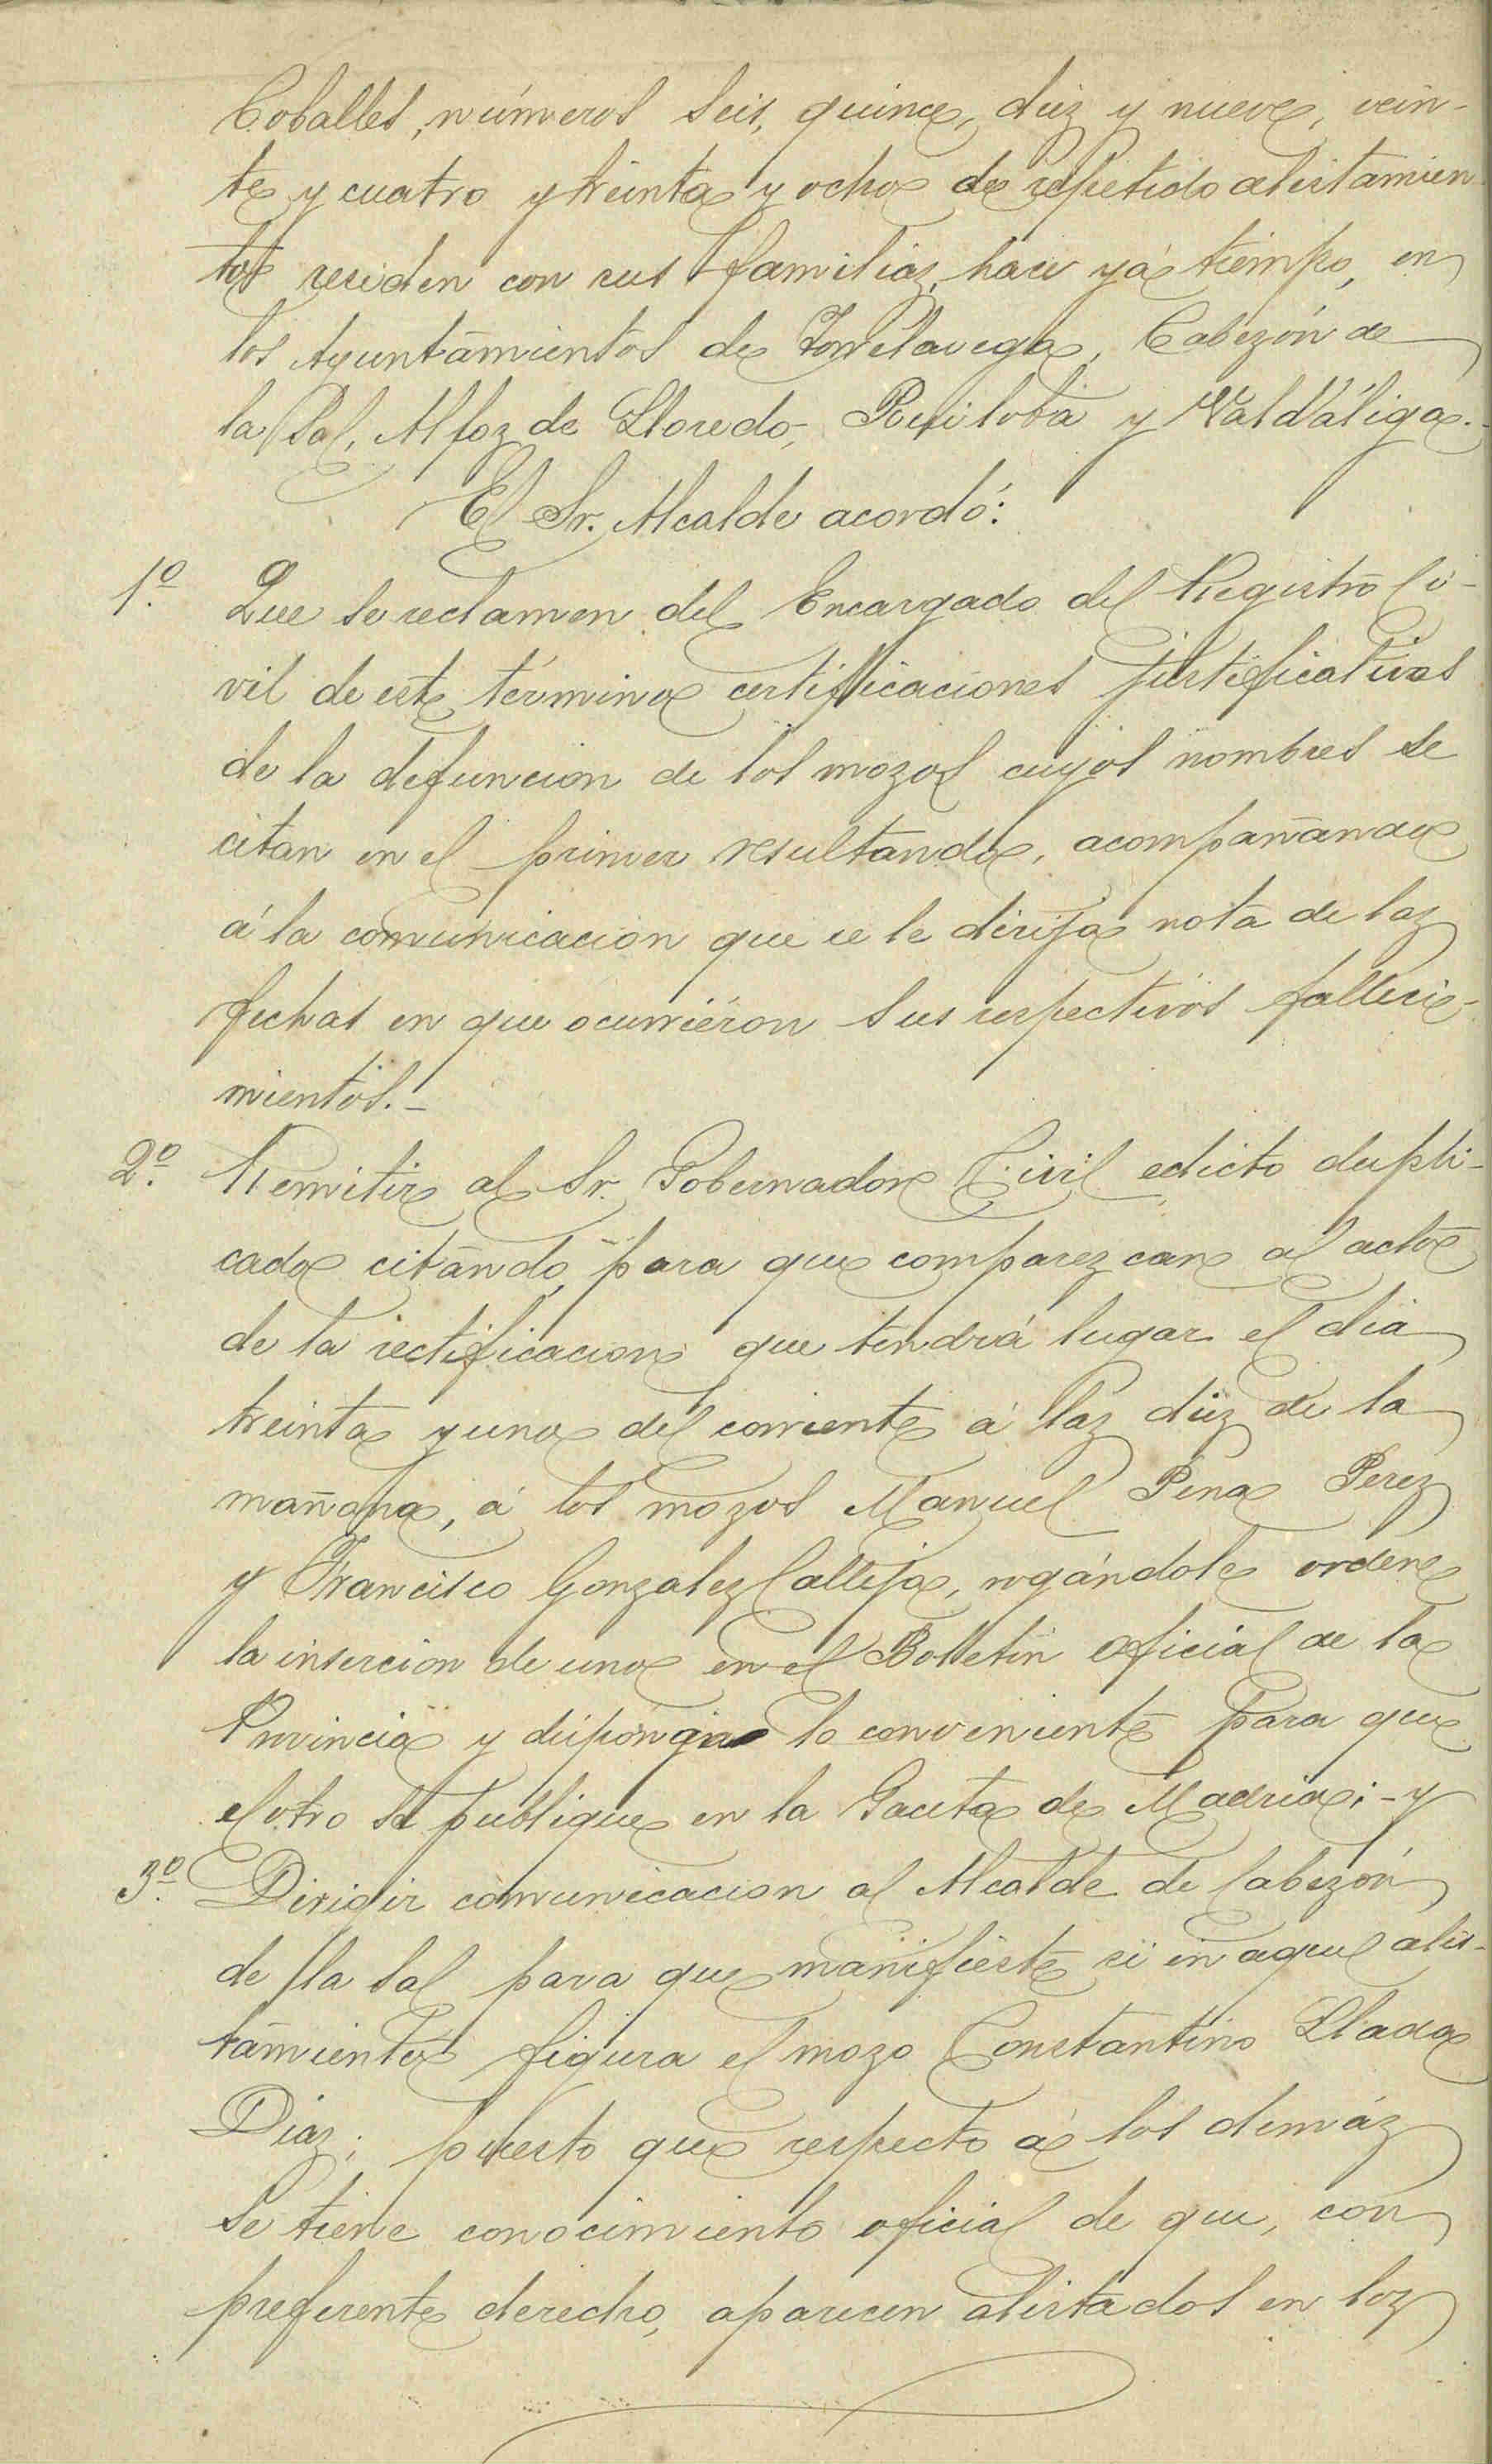 Coballes, números seis, quince, diez y nueve, vein-
te y cuatro y treinta y ocho de repetido alistamien-
to, residen con sus familias, hace yá tiempo, en
los Ayuntamientos de Torrelavega, Cabezón de
la Sal, Alfoz de Lloredo, Ruiloba y Valdáliga.-
El Sr. Alcalde acordó:
1.º Que se reclamen del Encargado del Registro Ci-
vil de este término certificaciones justificativas
de la defuncion de los mozos cuyos nombres se
citan en el primer resultando, acompañando
á la comunicacion que se le dirija nota de las
fechas en que ocurriéron sus respectivos falleci-
mientos.-
2.º Remitir al Sr. Gobernador Civil edicto dupli-
cado citando, para que comparezcan al acto
de la rectificacion que tendrá lugar el dia
treinta y uno del corriente á las diez de la
mañana, á los mozos Manuel Pena Perez
y Francisco Gonzalez Calleja, rogándole ordene
la insercion de uno en el Bolletin Oficial de la
Provincia y disponga lo conveniente para que
el otro se publique en la Gaceta de Madrid;- y
3.º Dirigir comunicacion al Alcalde de Cabezón
de la Sal para que manifieste si en aquel alis-
tamiento figura el mozo Constantino Llada
Diaz; puesto que respecto á los demás
se tiene conocimiento oficial de que, con
preferente derecho, aparecen alistados en los